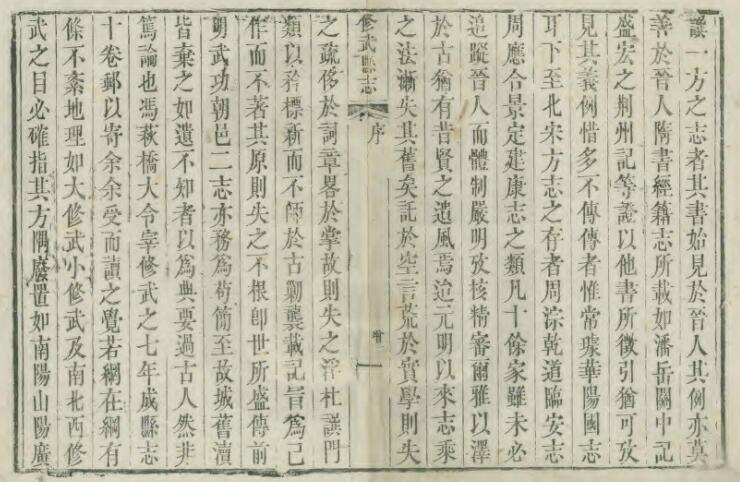 譔一方之志者其書始見於晉人其例亦莫
善於晉人隋書經籍志所載如潘岳關中記
盛宏之荆州記等證以他書所徵引猶可攷
見其義例惜多不傳傳者惟常璩華陽國志
耳下至北宋方志之存者周淙乾道臨安志
周應合景定建康志之類凡十餘家雖未必
追蹤晉人而體制嚴明攷核精審爾雅以澤
於古猶有昔賢之遺風焉迨元明以來志乘
之法漸失其舊矣託於空言荒於實學則失
修武縣志 序 一
之疏侈於詞章畧於掌故則失之浮杜譔門
類以矜標新而不師於古勦襲載記旨爲己
作而不著其原則失之不根卽世所盛傳前
明武功朝邑二志亦務爲苟簡至故城舊瀆
皆棄之如遺不知者以爲典要過古人然非
篤論也馮萩橋大令宰修武之七年成縣志
十卷郵以寄余余受而讀之覺若網在綱有
條不紊地理如大修武小修武及南北西修
武之目必確指其方隅廢置如南陽山陽廣